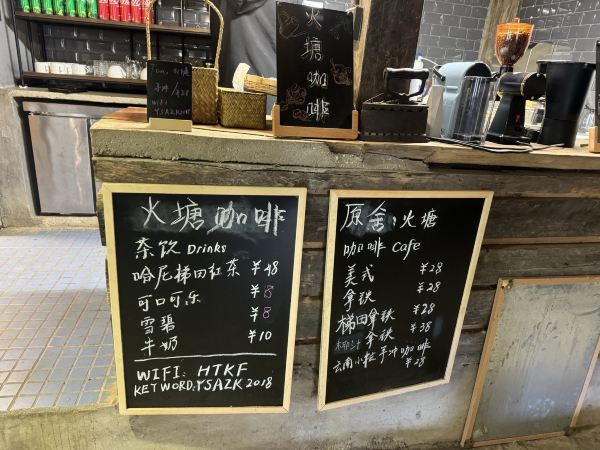 火塘咖啡
WIFI
YSAZK2018
火塘咖啡
茶饮 Drinks
哈尼梯田红茶 ¥48
可口可乐 ¥8
雪碧 ¥8
牛奶 ¥10
WIFI: HTKF
KEYWORD:YSAZK2018
原舍·火塘
咖啡 Cafe
美式 ¥28
拿铁 ¥28
梯田拿铁 ¥28
椰汁拿铁 ¥38
云南小粒手冲咖啡
¥28